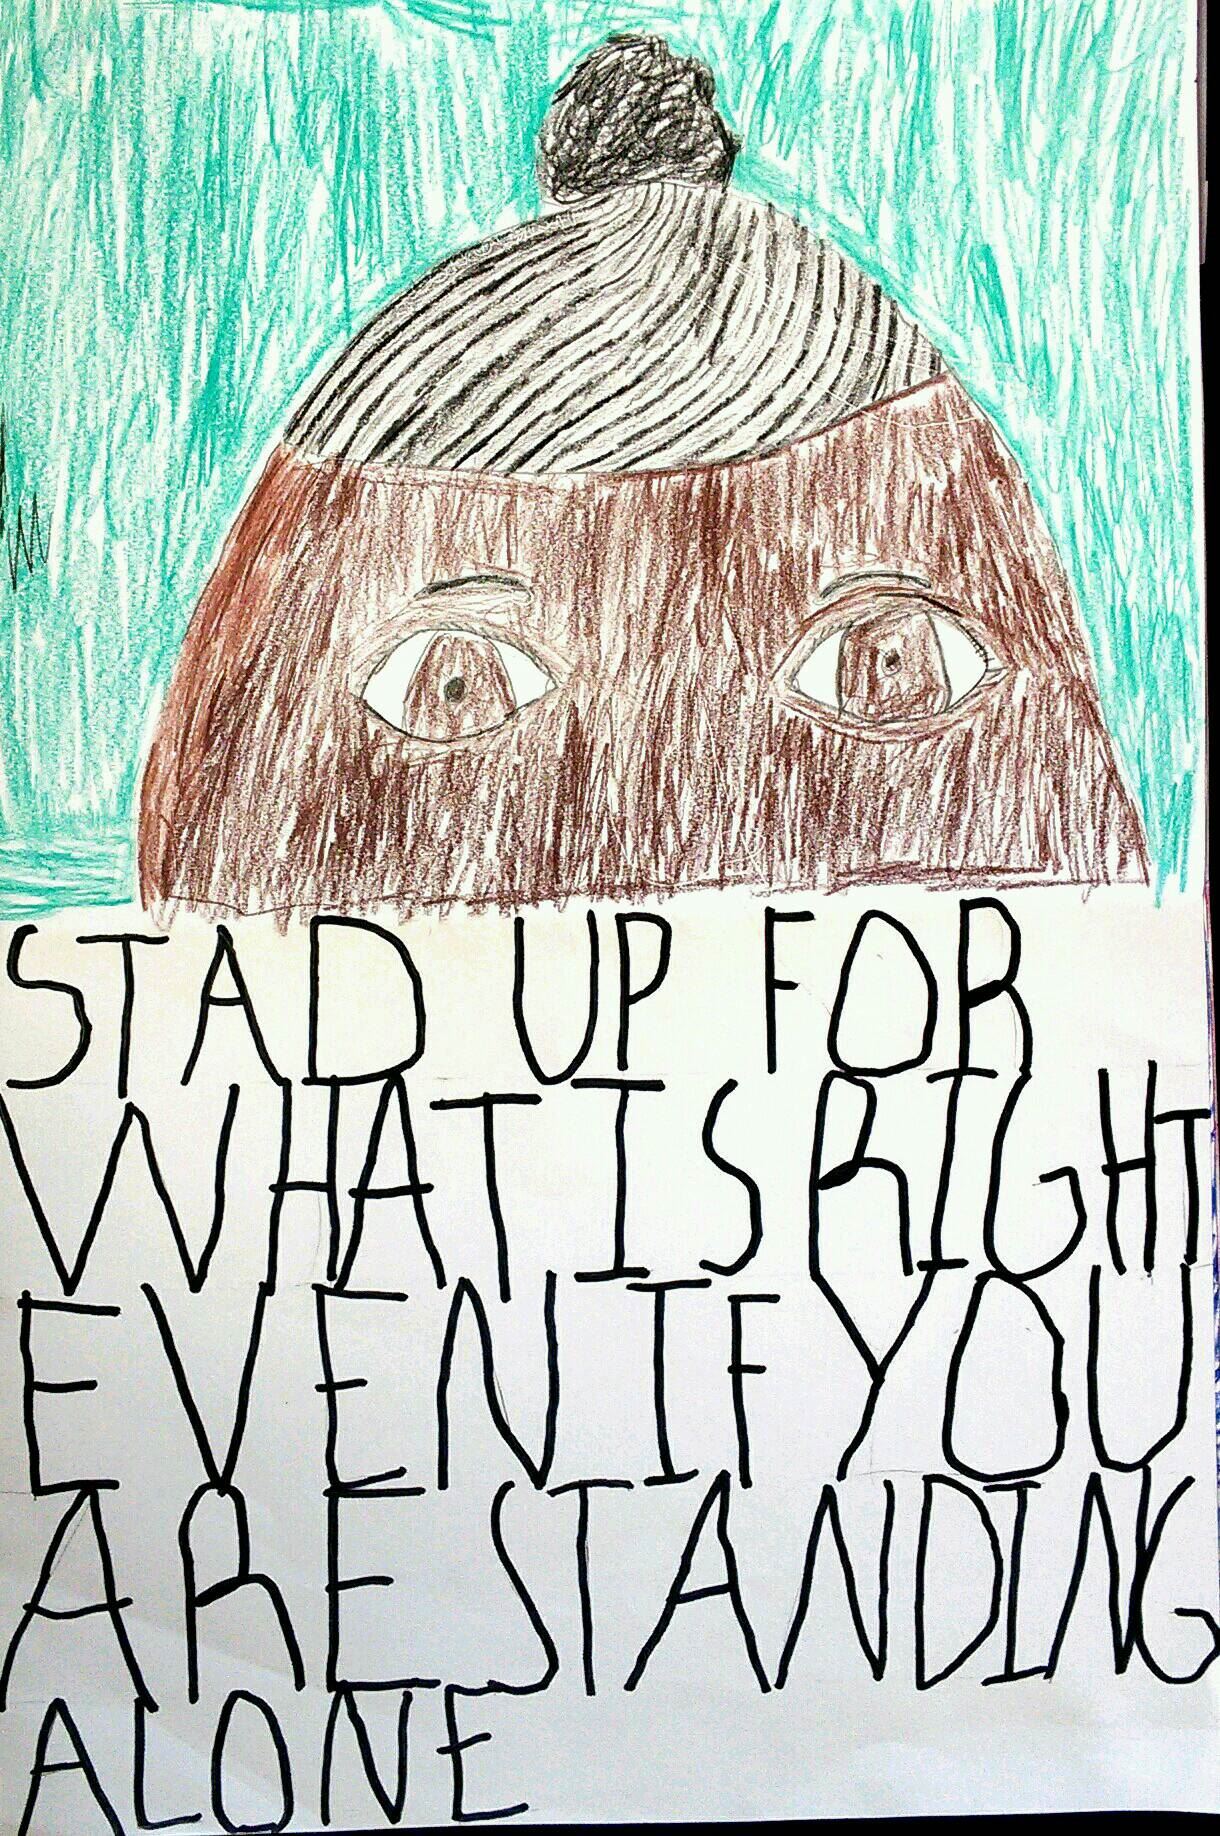 STAD UP FOR
WHAT IS RIGHT
EVEN IF YOU
ARE STANDING
ALONE